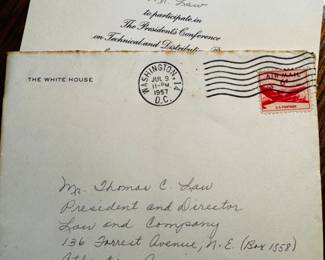 Law
to participate in
The President's Conference
on Technical and Distribution
THE WHITE HOUSE
WASHINGTON, 14
JUL 9
11-PM
1957
D.C.
AIR MAIL
6¢
U.S. POSTAGE
Mr. Thomas C. Law
President and Director
Law and Company
136 Forrest Avenue, N.E. (Box 1558)